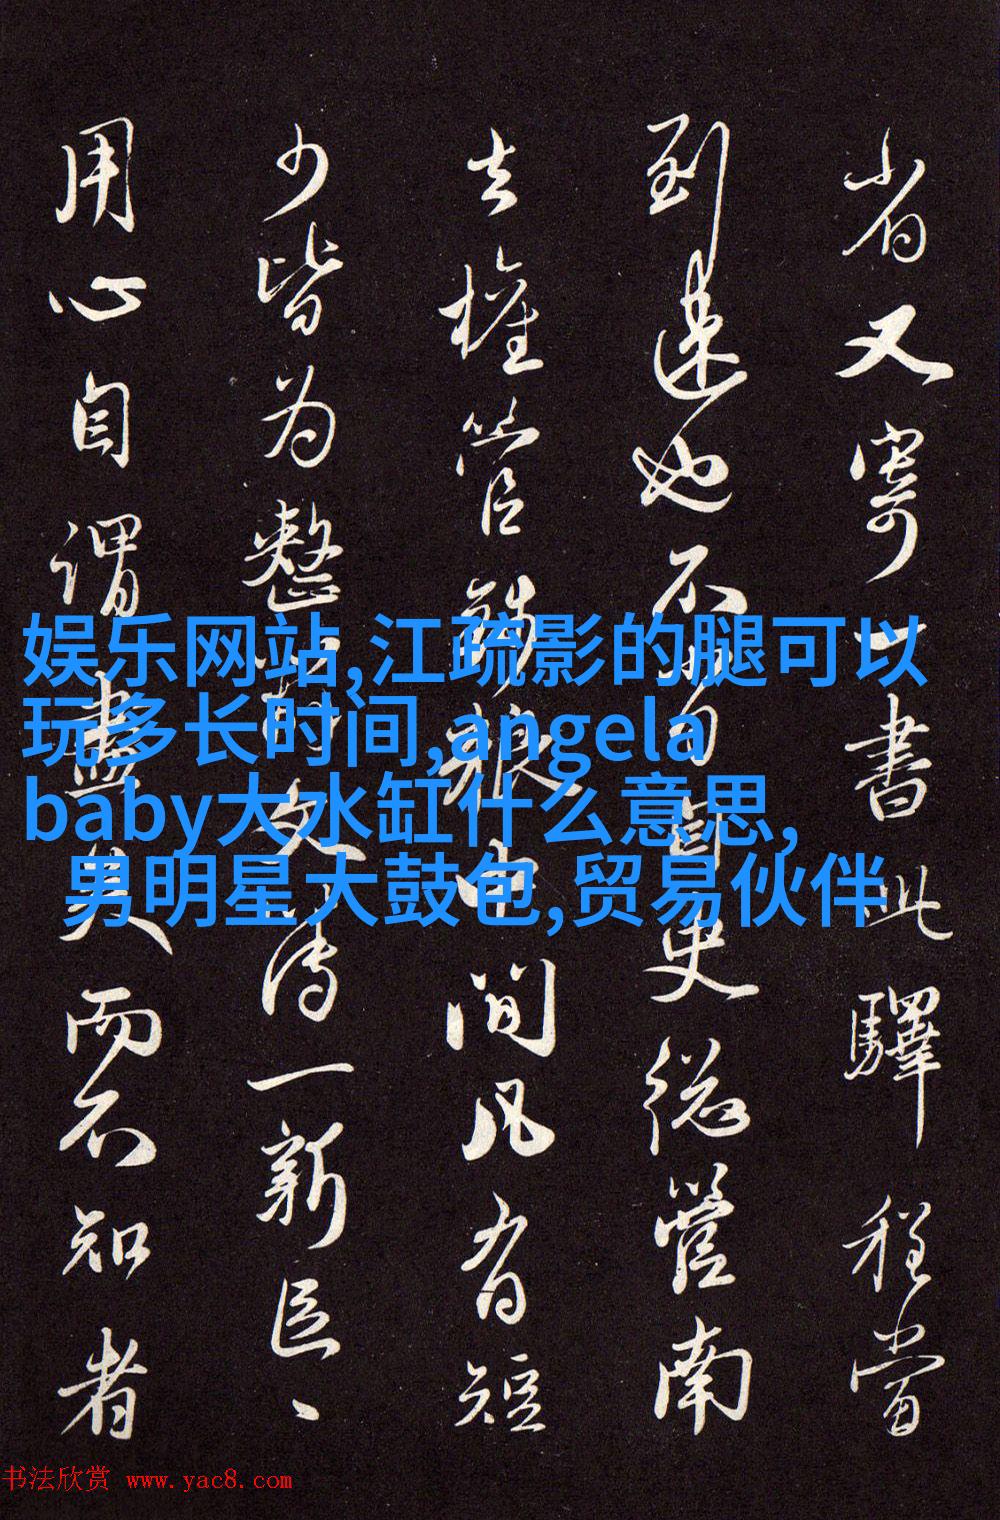 省又寄一書此驛程當
到速也不自史總管南
去權管中間凡有短
少皆为整傳一新
用心自謂盡矣而不知者
娱乐网站,江疏影的腿可以
玩多长时间,angela
baby大水缸什么意思,
男明星大鼓包,贸易伙伴
书法欣赏 www.yac8.com